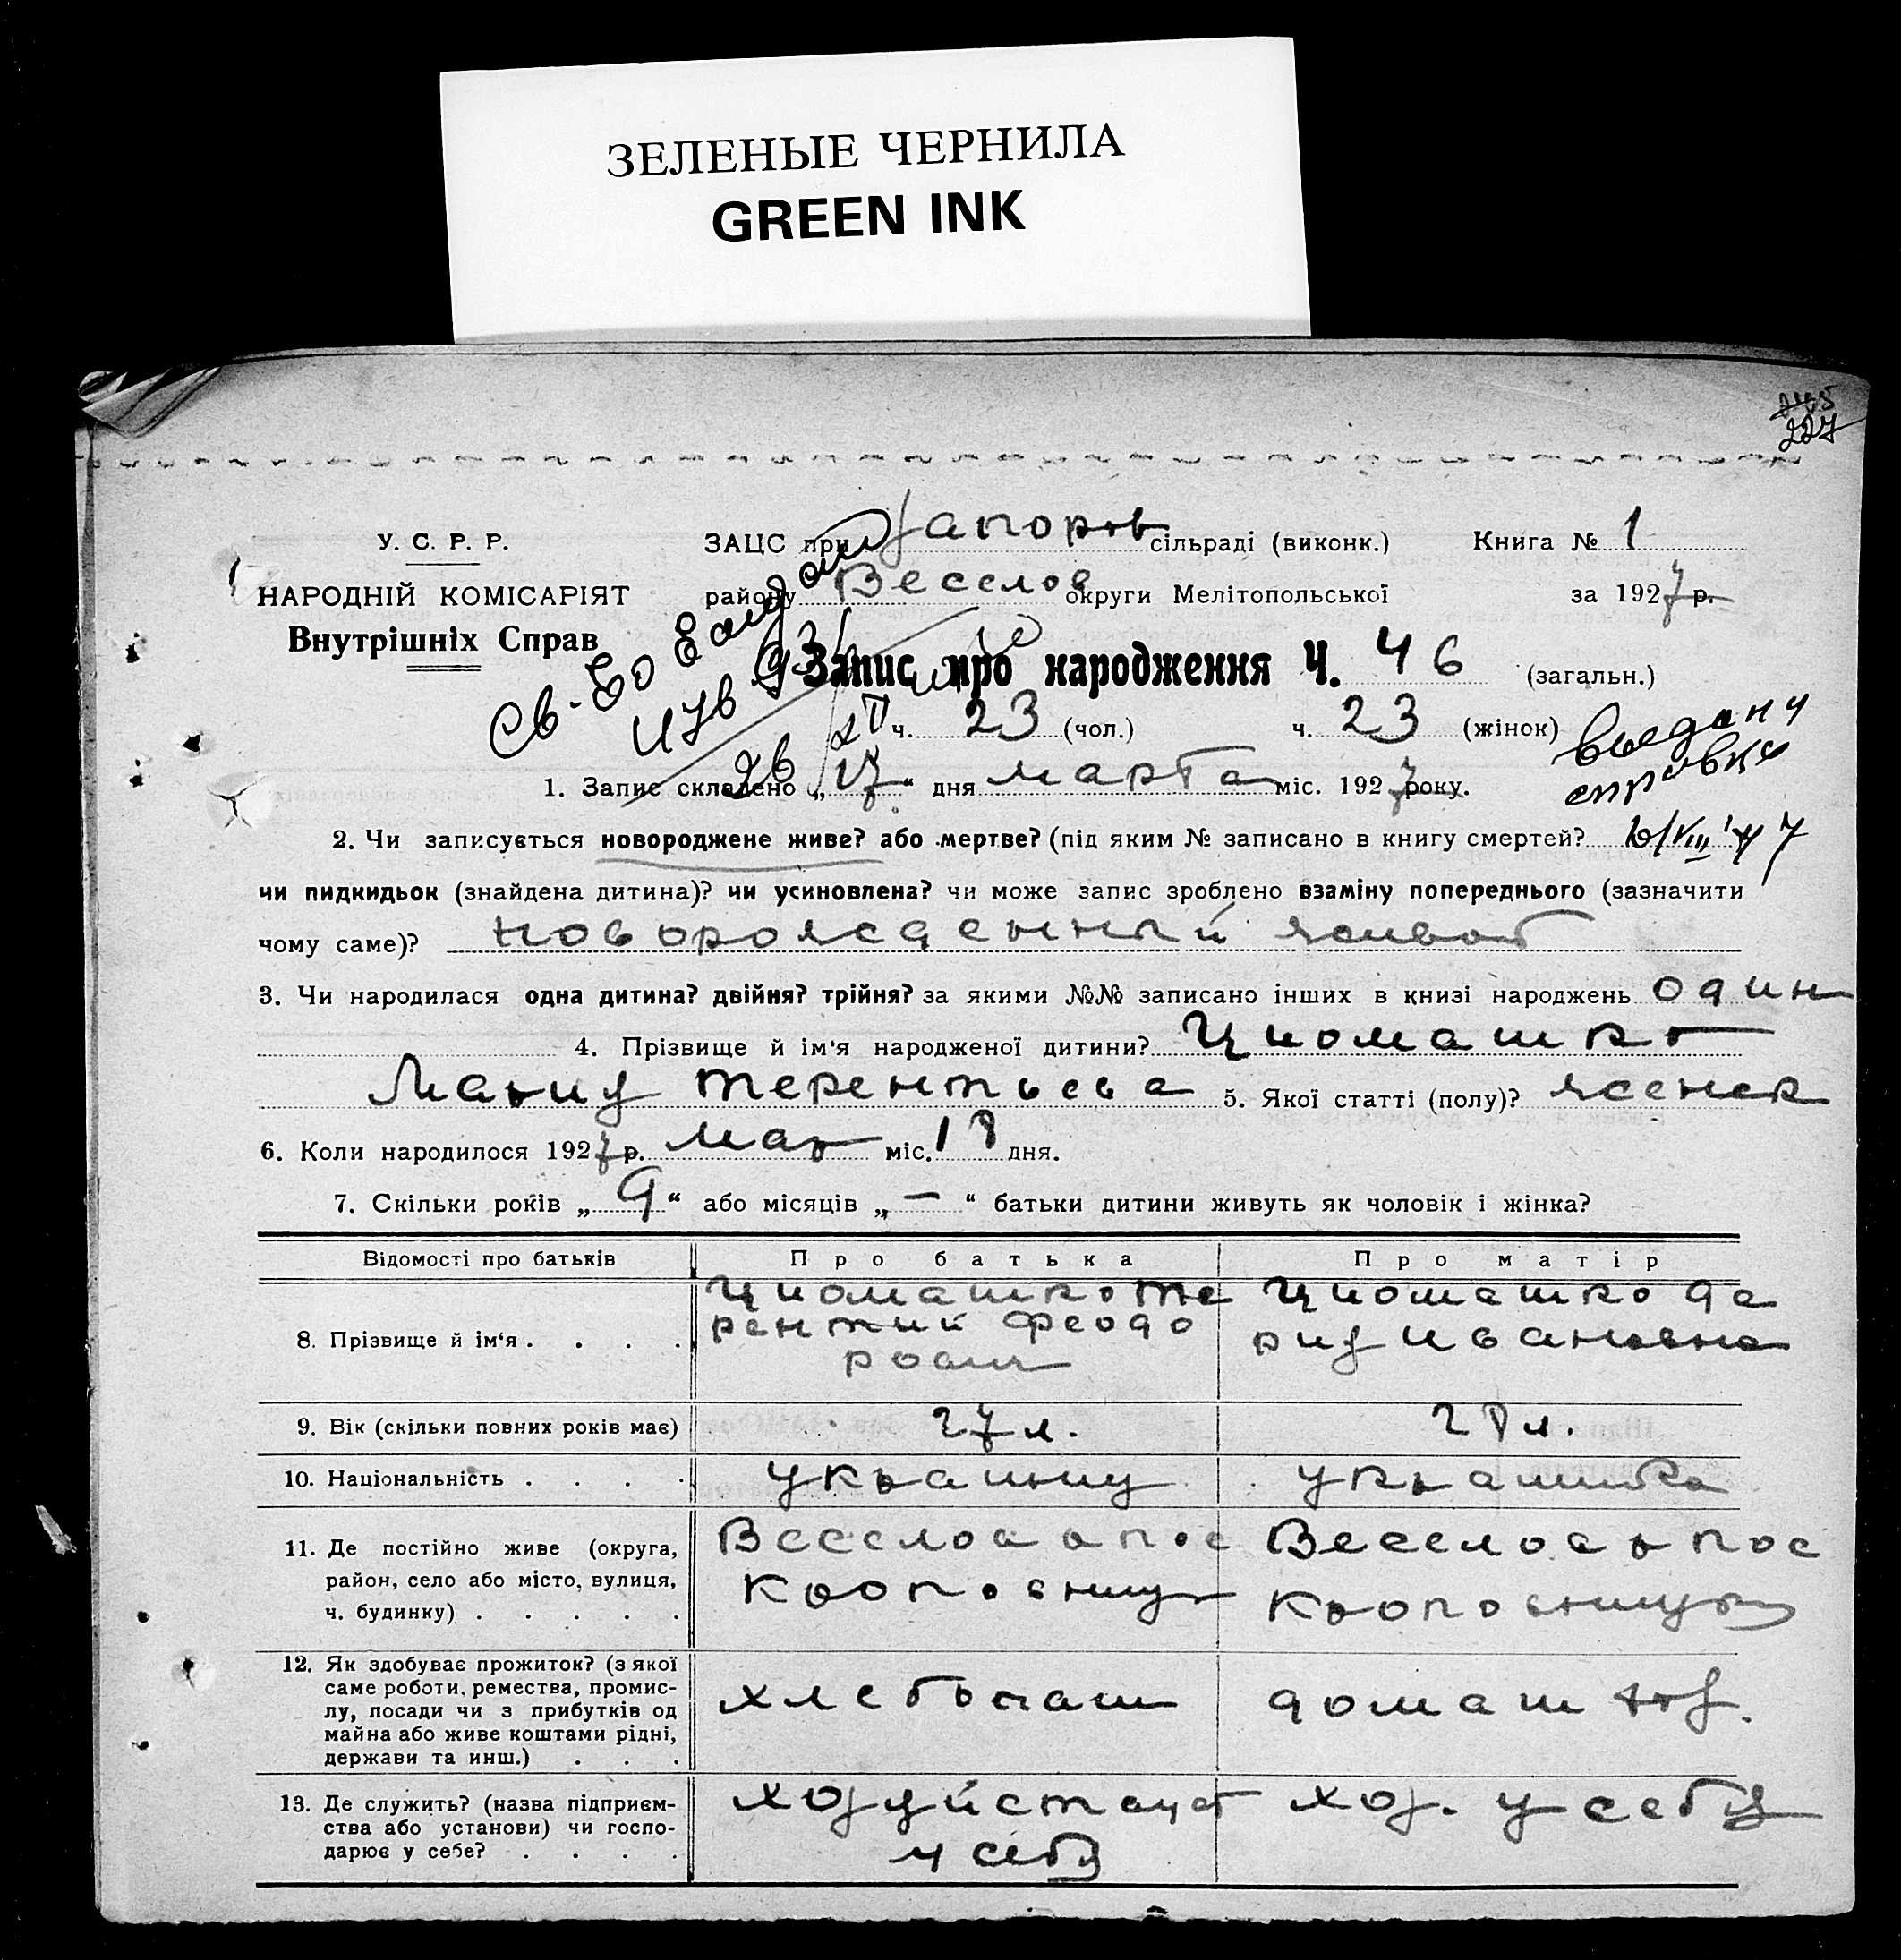 ЗЕЛЕНЫЕ ЧЕРНИЛА
GREEN INK
227
У. С. Р. Р.
НАРОДНІЙ КОМІСАРІЯТ
Внутрішніх Справ
ЗАЦС при Запоров сільраді (виконк.) Книга № 1
району Веселов округи Мелітопольської за 1927 р.
Запис про народження Ч. 46 (загальн.)
ч. 23 (чол.) ч. 23 (жінок)
выдану
справку
1. Запис складено „17“ дня марта міс. 1927 року.
2. Чи записується новороджене живе? або мертве? (під яким № записано в книгу смертей?
чи пидкидьок (знайдена дитина)? чи усиновлена? чи може запис зроблено взаміну попереднього (зазначити
чому саме)? новорожденный живой
3. Чи народилася одна дитина? двійня? трійня? за якими №№ записано інших в книзі народжень один
4. Прізвище й ім‘я народженої дитини? Циомашко
Мария Терентьева 5. Якої статті (полу)? женск
6. Коли народилося 1927 р. мар міс. 18 дня.
7. Скільки років „9“ або місяців „—“ батьки дитини живуть як чоловік і жінка?
Відомості про батьків Про батька Про матір
8. Прізвище й ім‘я . . . . Циомашко Те
рентий Феодо
рович
Циомашко Да
рия Ивановна
9. Вік (скільки повних років має) 27 л. 28 л.
10. Національність . . . . украинц украинка
11. Де постійно живе (округа,
район, село або місто, вулиця,
ч. будинку) . . . . .
Веселов р пос
Кропивниц
Веселов р пос
Кропивниц
12. Як здобуває прожиток? (з якої
саме роботи, ремества, промис-
лу, посади чи з прибутків од
майна або живе коштами рідні,
держави та инш.) . . .
хлебопаш
домаш хоз.
13. Де служить? (назва підприєм-
ства або установи) чи госпо-
дарює у себе? . . . .
хозуйствует
у себя
хоз. у себя